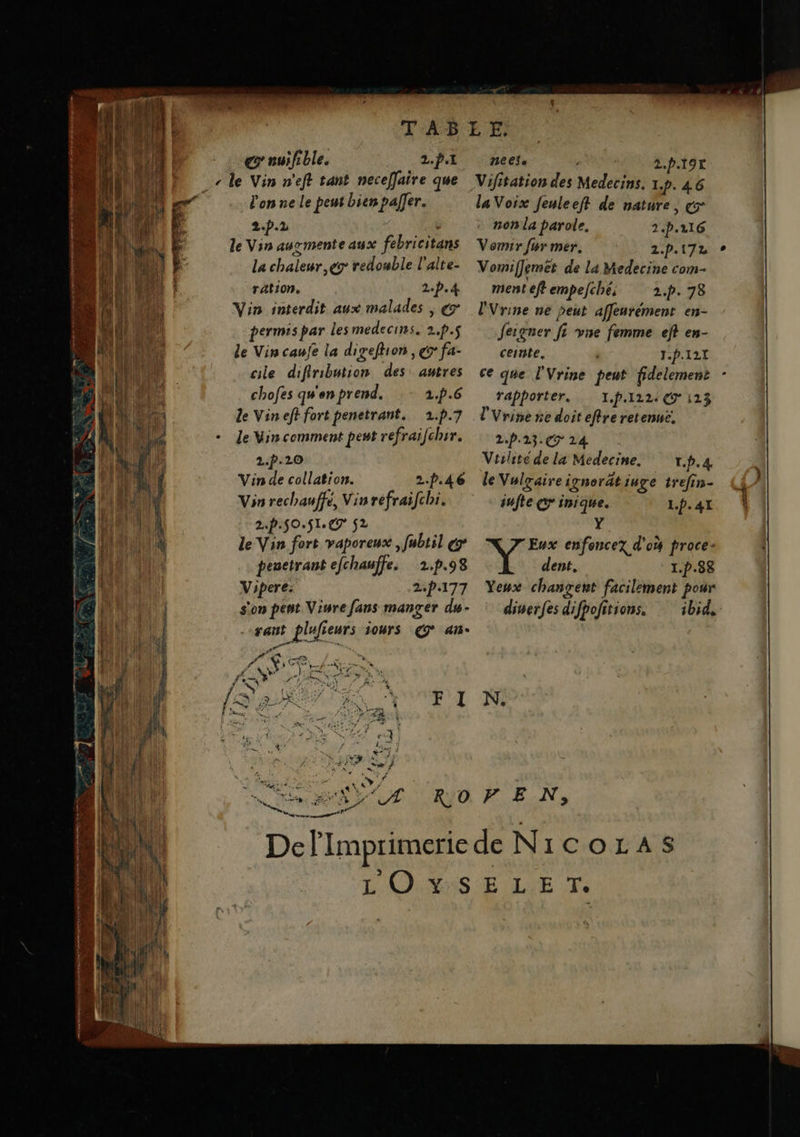 TABLE.
& nuisible. 2.p.1
le Vin n'est tant necessaire que
l'on ne le peut bien passer.
2.p.2
le Vin augmente aux febricitans
la chaleur, & redouble l'alte-
ration. 2.p.4
Vin interdit aux malades, &
permis par les medecins. 2.p.5
le Vin cause la digestion, & fa-
cile distribution des autres
choses qu'en prend. 2.p.6
le Vin est fort penetrant. 2.p.7
le Vin comment peut refraischir.
2.p.20
Vin de collation. 2.p.46
Vin rechauffé, Vin refraischi.
2.p.50.51.& 52
le Vin fort vaporeux, subtil &
penetrant eschauffe. 2.p.98
Vipere. 2.p.177
s'on peut Viure sans manger du-
rant plusieurs iours & an-
nees. 2.p.191
Visitation des Medecins. 1.p. 46
la Voix seule est de nature, &
non la parole. 2.p.216
Vomir sur mer. 2.p.172
Vomissemēt de la Medecine com-
ment est empesché. 2.p. 78
l'Vrine ne peut asseurément en-
seigner si vne femme est en-
ceinte. 1.p.121
ce que l'Vrine peut fidelement
rapporter. 1.p.122. & 123
l'Vrine ne doit estre retenuë.
2.p.23.& 24
Vtilité de la Medecine. 1.p.4
le Vulgaire ignorāt iuge tresin-
iuste & inique. 1.p.41
Y
Yeux enfoncez d'où proce-
dent. 1.p.88
Yeux changent facilement pour
diuerses dispositions. ibid.
FIN.
A ROVEN,
De l'Imprimerie de NICOLAS
L'OYSELET.